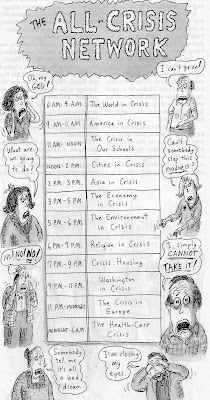 THE ALL-CRISIS
NETWORK
Oh, my
GOD!
I can't go on!
What are
we going
to do?
Can't
somebody
stop this
madness?
No! NO! NO!
I simply
CANNOT
TAKE IT!
6 A.M.-9 A.M. The World in Crisis
9 A.M.-11 A.M. America in Crisis
11 A.M.-NOON The Crisis in
Our Schools
NOON-2 P.M. Cities in Crisis
2 P.M.-3 P.M. Asia in Crisis
3 P.M.-5 P.M. The Economy
in Crisis
5 P.M.-6 P.M. The Environment
in Crisis
6 P.M.-7 P.M. Religion in Crisis
7 P.M.-9 P.M. Crisis: Housing
9 P.M.-11 P.M. Washington
in Crisis
11 P.M.-MIDNIGHT The Crisis in
Europe
MIDNIGHT-6 A.M. The Health-Care
Crisis
Somebody
tell me
it's all
a bad
dream
I'm closing
my
eyes.